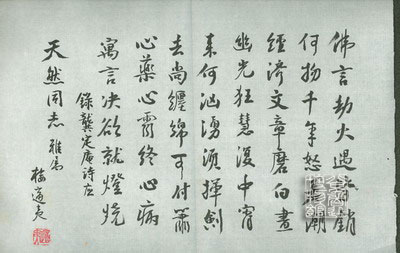 佛言劫火遇皆銷
何物千年怒若潮
經濟文章磨白晝
幽光狂慧復中宵
来何汹湧須揮劍
去尚纏綿可付簫
心藥心靈終心病
寓言决欲就燈燒
錄龔定庵詩左
天然同志雅屬
樓適夷